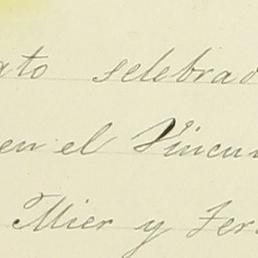 ato selebrad
en el Vincu
Mier y Fer